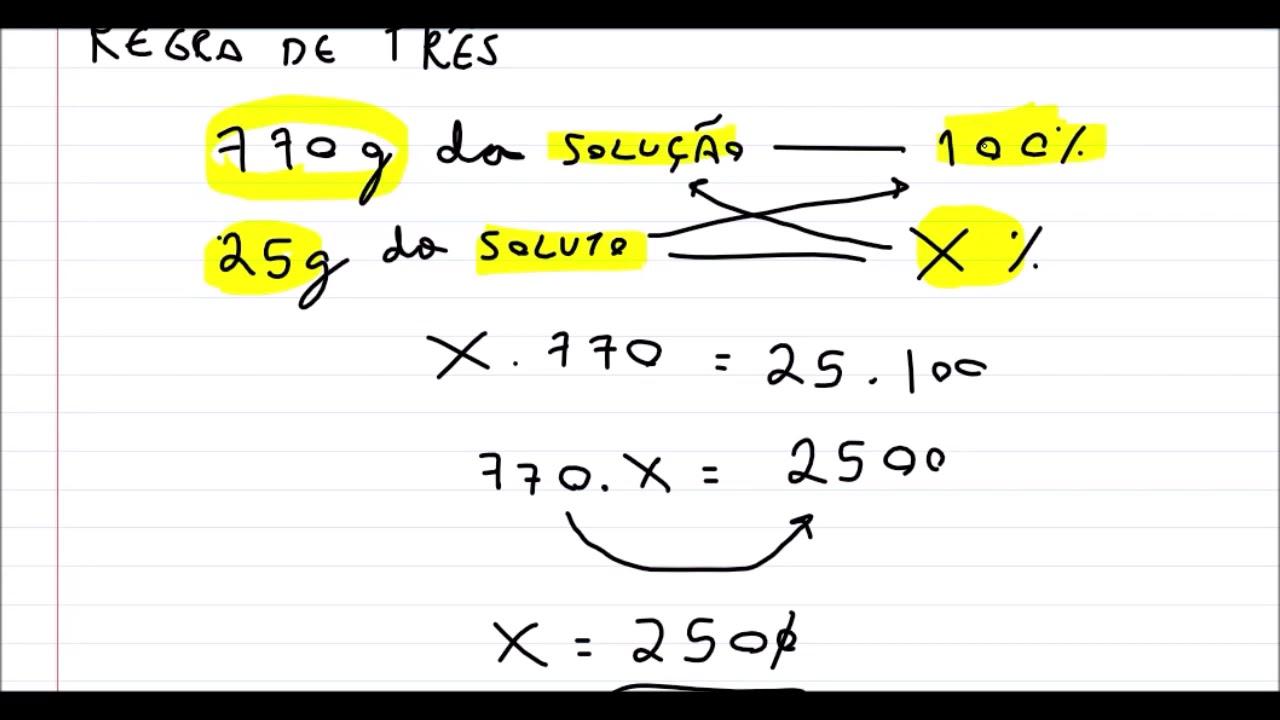 REGRA DE TRÊS
770g da SOLUÇÃO 100%
25g do SOLUTO X %
X . 770 = 25 . 100
770 . X = 2500
X = 2500